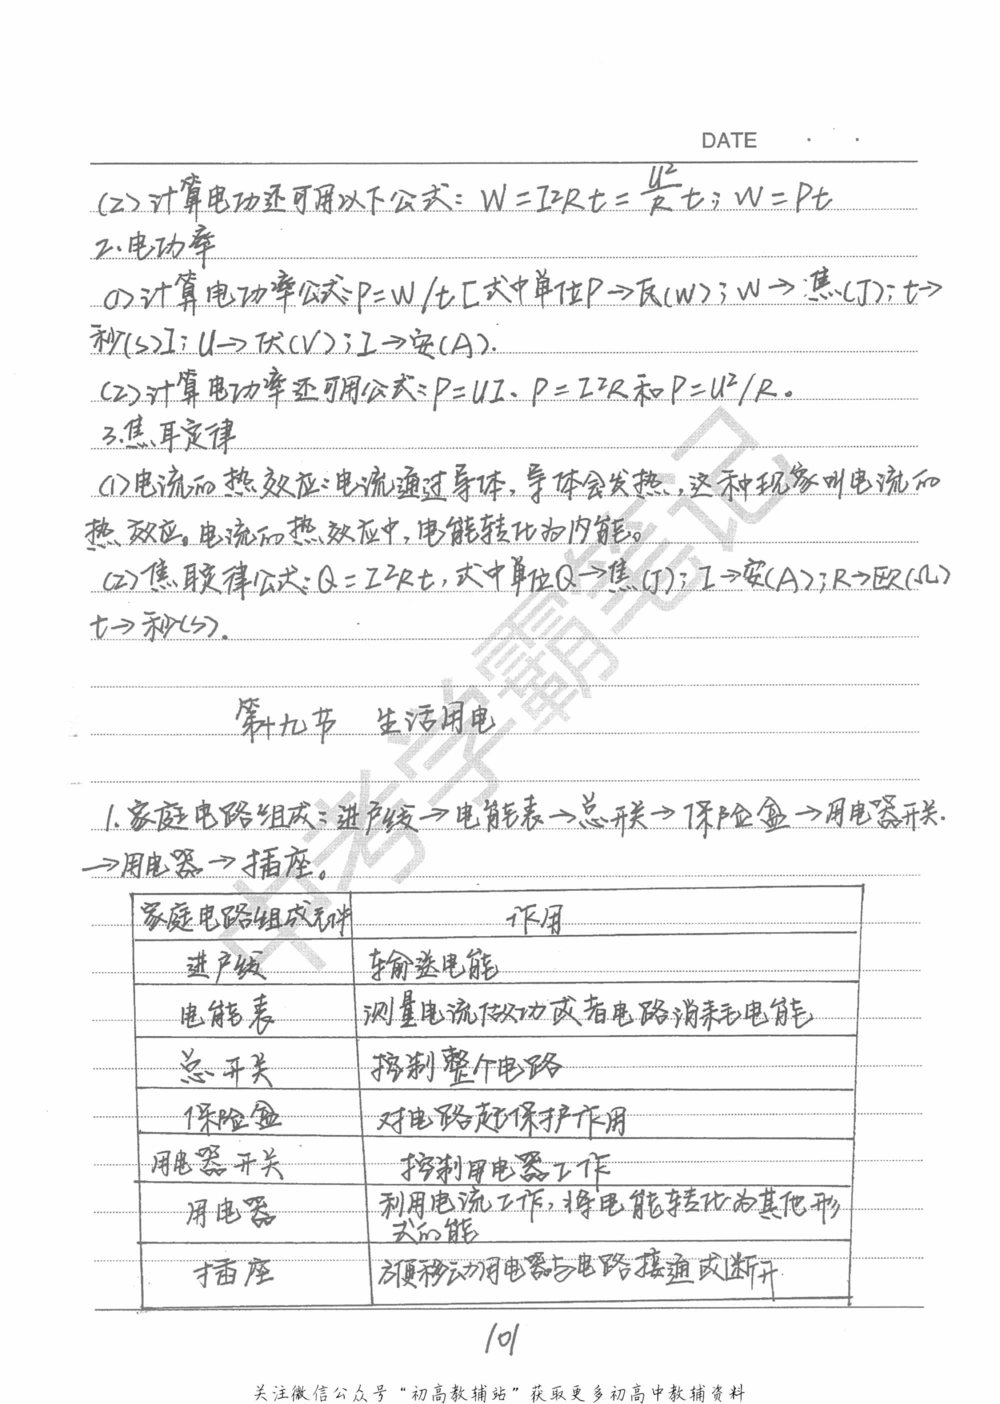 DATE · ·
(2)计算电功还可用以下公式:W=I²Rt=U²/R t;W=Pt
2.电功率
(1)计算电功率公式:P=W/t[式中单位P→瓦(W);W→焦(J);t→
秒(s)];U→伏(V);I→安(A).
(2)计算电功率还可用公式:P=UI、P=I²R和P=U²/R。
3.焦耳定律
(1)电流的热效应:电流通过导体,导体会发热,这种现象叫电流的
热效应。电流的热效应中,电能转化为内能。
(2)焦耳定律公式:Q=I²Rt,式中单位Q→焦(J);I→安(A);R→欧(Ω)
t→秒(s).
第十九节 生活用电
1.家庭电路组成:进户线→电能表→总开关→保险盒→用电器开关
→用电器→插座。
家庭电路组成元件 作用
进户线 输送电能
电能表 测量电流做功或者电路消耗电能
总开关 控制整个电路
保险盒 对电路起保护作用
用电器开关 控制用电器工作
用电器 利用电流工作,将电能转化为其他形
式的能
插座 方便移动用电器与电路接通或断开
101
关注微信公众号“初高教辅站”获取更多初高中教辅资料
中考学霸笔记